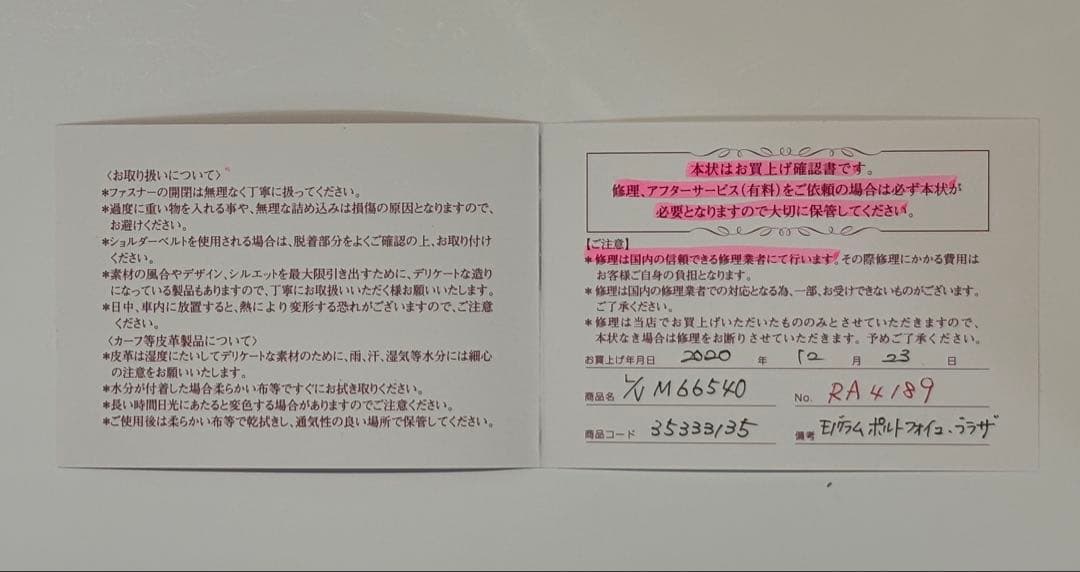 〈お取り扱いについて〉
＊ファスナーの開閉は無理なく丁寧に扱ってください。
＊過度に重い物を入れる事や、無理な詰め込みは損傷の原因となりますので、
お避けください。
＊ショルダーベルトを使用される場合は、脱着部分をよくご確認の上、お取り付け
ください。
＊素材の風合やデザイン、シルエットを最大限引き出すために、デリケートな造り
になっている製品もありますので、丁寧にお取扱いいただく様お願いいたします。
＊日中、車内に放置すると、熱により変形する恐れがございますので、ご注意
ください。
〈カーフ等皮革製品について〉
＊皮革は湿度にたいしてデリケートな素材のために、雨、汗、湿気等水分には細心
の注意をお願いいたします。
＊水分が付着した場合柔らかい布等ですぐにお拭き取りください。
＊長い時間日光にあたると変色する場合がありますのでご注意ください。
＊ご使用後は柔らかい布等で乾拭きし、通気性の良い場所で保管してください。
本状はお買上げ確認書です。
修理、アフターサービス（有料）をご依頼の場合は必ず本状が
必要となりますので大切に保管してください。
【ご注意】
＊修理は国内の信頼できる修理業者にて行います。その際修理にかかる費用は
お客様ご自身の負担となります。
＊修理は国内の修理業者での対応となる為、一部、お受けできないものがございます。
ご了承ください。
＊修理は当店でお買上げいただいたもののみとさせていただきますので、
本状なき場合は修理をお断りさせていただきます。予めご了承ください。
お買上げ年月日 2020 年 12 月 23 日
商品名 L/V M66540 No. RA4189
商品コード 35333135 備考 モノグラム ポルトフォイユ・ブラザ